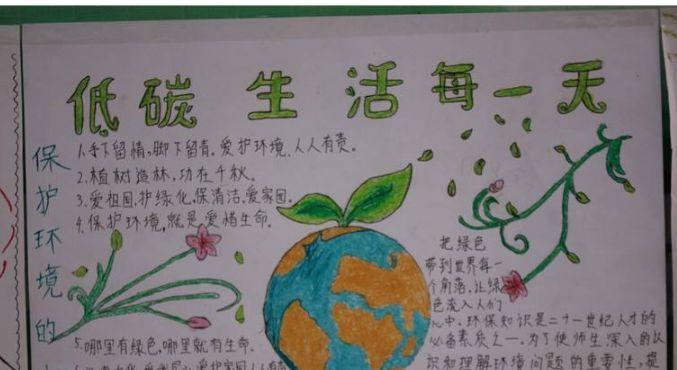 低碳生活每一天
保护环境的
1.手下留情,脚下留青。爱护环境、人人有责。
2.植树造林,功在千秋。
3.爱祖国,护绿化,保清洁,爱家园。
4.保护环境,就是爱惜生命。
5.哪里有绿色,哪里就有生命。
把绿色
带到世界每一
个角落,让绿
色流入人们
心中。环保知识是二十一世纪人才的
必备素质之一。为了使师生深入的认
识和理解环境问题的重要性,提